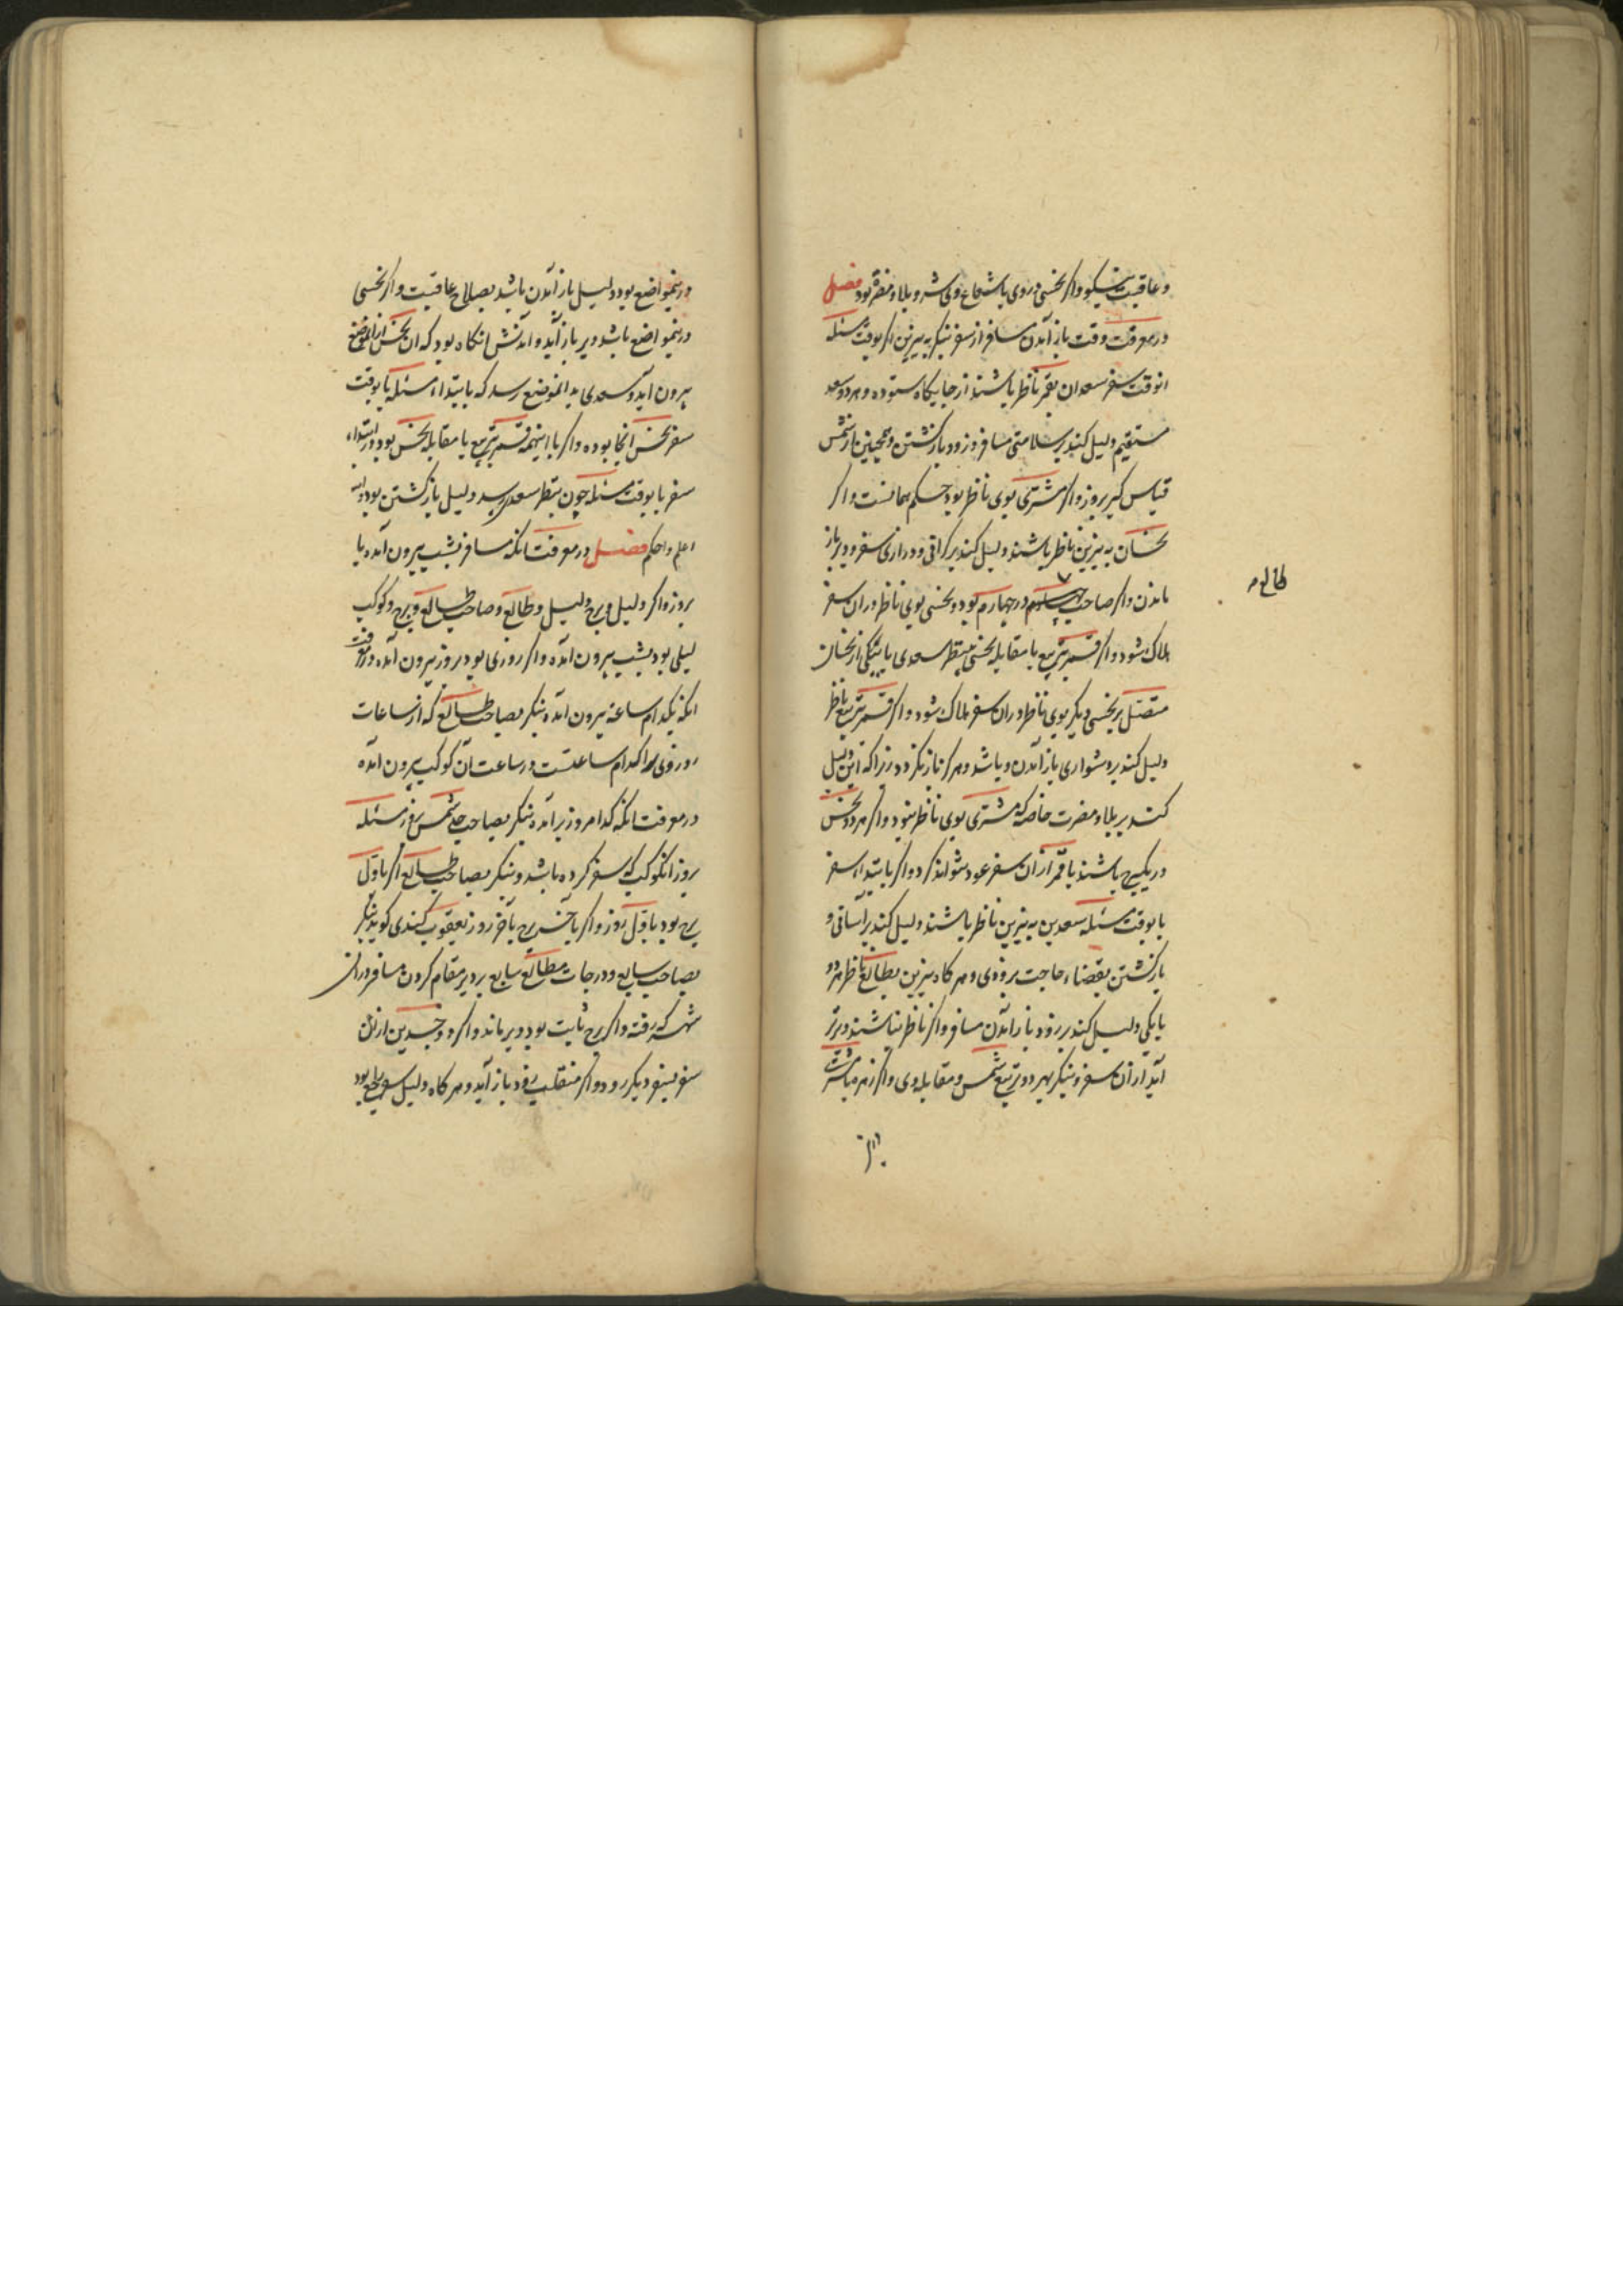 و عاقبت نیکو و اگر نحسی در وی یا شعاع وی شر و بلا و مضرة بود فصل
در معرفت وقت باز آمدن مسافر از سفر بنگر به نیرین اگر بوقت مسئله
انوقت سفر سعدان بقمر ناظر باشند از جایگاه ستوده و هر دو سعد
مستقیم دلیل کند بر سلامتی مسافر و زود بازگشتن و همچنین از شمس
قیاس گیر بروز و اگر مشتری بوی ناظر بود حکم همانست و اگر
نحسان به نیرین ناظر باشند دلیل کند بر گرانی و درازی سفر و دیر باز
ماندن و اگر صاحب در چهارم بود و نحسی بوی ناظر در ان سفر
طالع
هلاک شود و اگر قمر بتربیع یا مقابله نحسی بی نظر سعدی یا بیکی از نحسان
متصل بر نحسی دیگر بوی ناظر در ان سفر هلاک شود و اگر قمر بتربیع ناظر
دلیل کند بر دشواری باز آمدن و باشد و هرگز باز نگردد زیرا که این دلیل
کند بر بلا و مضرت خاصه که مشتری بوی ناظر نبود و اگر هر دو نحس
در یک برج باشند با قمر از ان سفر عود نتواند کرد و اگر بابتداء سفر
یا بوقت مسئله سعدین به نیرین ناظر باشند دلیل کند بر آسانی و
بازگشتن بقضاء حاجت بزودی و هر گاه نیرین بطالع ناظر هر دو
یا یکی دلیل کند بر زود باز آمدن مسافر و اگر ناظر نباشند دیرتر
آید از ان سفر و بنگر بهر دو تربیع شمس و مقابله وی و اگر زهره یا مشتری
در ینمواضع بود دلیل باز آمدن باشد بصلاح عاقبت و اگر نحسی
در ینمواضع باشد دیر باز آید و آمدنش انگاه بود که ان نحس از انموضع
بیرون اید و سعدی بدانموضع رسد که بابتداء مسئله یا بوقت
سفر نحس آنجا بوده و اگر با اینهمه قمر بتربیع یا مقابله نحس بود در ابتداء
سفر یا بوقت مسئله چون بنظر سعد رسد دلیل بازگشتن بود والله
اعلم و احکم فصل در معرفت انکه مسافر بشب بیرون آمده یا
بروز و اگر دلیل و برج دلیل و طالع و صاحب طالع و برج و کوکب
لیلی بود بشب بیرون آمده و اگر روزی بود بروز بیرون آمده در معرفت
انکه بکدام ساعة بیرون آمده بنگر بصاحب طالع که از ساعات
روزی او را کدام ساعتست در ساعت آن کوکب بیرون آمده
در معرفت انکه کدام روز بر آمده بنگر بصاحب شمس روز مسئله
بروز انکوکب که سفر کرده باشد و بنگر بصاحب طالع اگر باول
برج بود باول روز و اگر بآخر برج بآخر روز یعقوب کندی گوید بنگر
بصاحب سابع و درجات مطالع سابع بر دیر مقام کردن مسافر در ان
شهر که رفته و اگر برج ثابت بود دیر ماند و اگر ذو جسدین از ان
سفر بسفر دیگر رود و اگر منقلب زود باز آید و هر گاه دلیل سفر